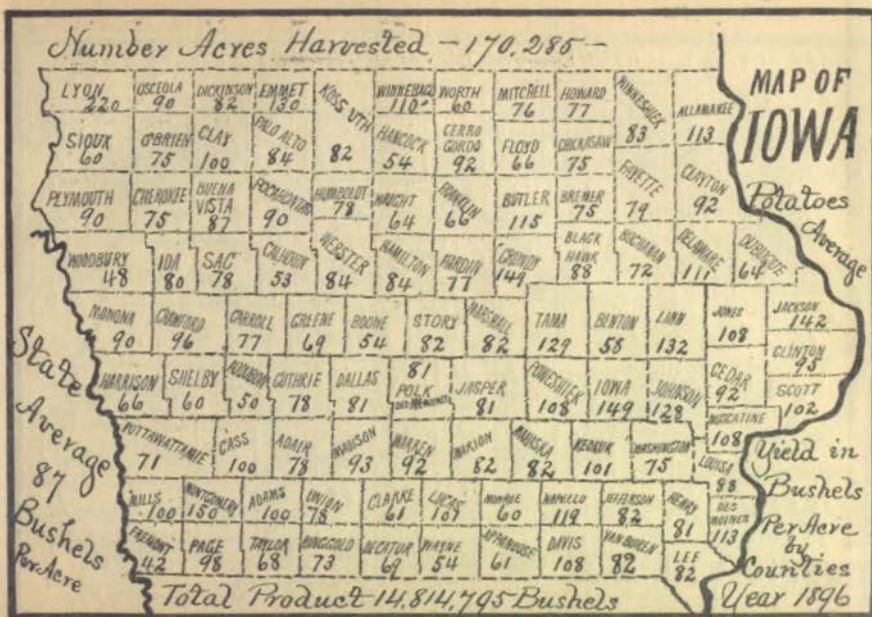 Number Acres Harvested - 170,285 -
MAP OF
IOWA
Potatoes
Average
LYON
220
OSCEOLA
90
DICKINSON
82
EMMET
130
KOSSUTH
82
WINNEBAGO
110
WORTH
60
MITCHELL
76
HOWARD
77
WINNESHIEK
83
ALLAMAKEE
113
SIOUX
60
O'BRIEN
75
CLAY
100
PALO ALTO
84
HANCOCK
54
CERRO
GORDO
92
FLOYD
66
CHICKASAW
75
FAYETTE
79
CLAYTON
92
PLYMOUTH
90
CHEROKEE
75
BUENA
VISTA
87
POCAHONTAS
90
HUMBOLDT
78
WRIGHT
64
FRANKLIN
66
BUTLER
115
BREMER
75
WOODBURY
48
IDA
80
SAC
78
CALHOUN
53
WEBSTER
84
HAMILTON
84
HARDIN
77
GRUNDY
149
BLACK
HAWK
88
BUCHANAN
72
DELAWARE
111
DUBUQUE
64
MONONA
90
CRAWFORD
96
CARROLL
77
GREENE
69
BOONE
54
STORY
82
MARSHALL
82
TAMA
129
BENTON
58
LINN
132
JONES
108
JACKSON
142
CLINTON
95
HARRISON
66
SHELBY
60
AUDUBON
50
GUTHRIE
78
DALLAS
81
81
POLK
DES MOINES
JASPER
81
POWESHIEK
108
IOWA
149
JOHNSON
128
CEDAR
92
SCOTT
102
MUSCATINE
108
POTTAWATTAMIE
71
CASS
100
ADAIR
78
MADISON
93
WARREN
92
MARION
82
MAHASKA
82
KEOKUK
101
WASHINGTON
75
LOUISA
88
MILLS
100
MONTGOMERY
150
ADAMS
100
UNION
78
CLARKE
61
LUCAS
107
MONROE
60
WAPELLO
119
JEFFERSON
82
HENRY
81
DES
MOINES
113
FREMONT
42
PAGE
98
TAYLOR
68
RINGGOLD
73
DECATUR
69
WAYNE
54
APPANOOSE
61
DAVIS
108
VAN BUREN
82
LEE
82
State
Average
87
Bushels
Per Acre
Yield in
Bushels
Per Acre
by
Counties
Year 1896
Total Product - 14,814,795 Bushels